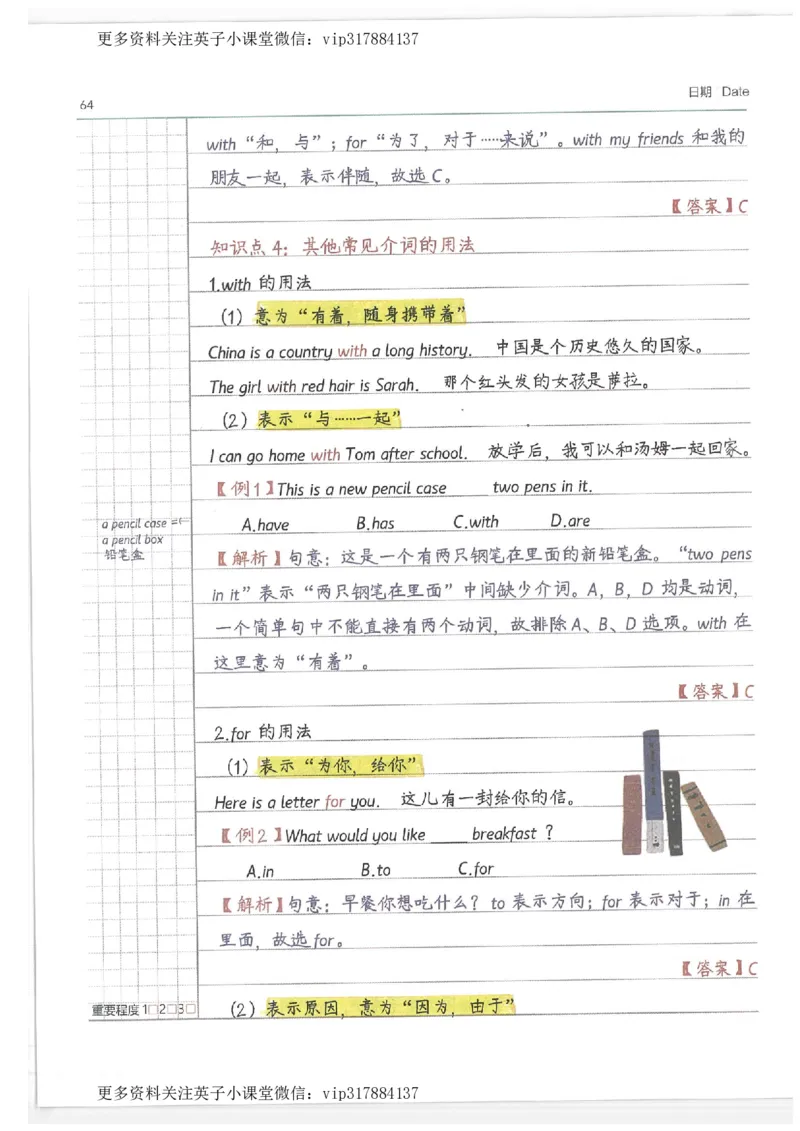 更多资料关注英子小课堂微信：vip317884137
日期 Date
64
with“和，与”；for“为了，对于……来说”。with my friends 和我的
朋友一起，表示伴随，故选C。
【答案】C
知识点4：其他常见介词的用法
1.with 的用法
（1）意为“有着，随身携带着”
China is a country with a long history. 中国是个历史悠久的国家。
The girl with red hair is Sarah. 那个红头发的女孩是萨拉。
（2）表示“与……一起”
I can go home with Tom after school. 放学后，我可以和汤姆一起回家。
【例1】This is a new pencil case ____ two pens in it.
A.have B.has C.with D.are
a pencil case =
a pencil box
铅笔盒
【解析】句意：这是一个有两只钢笔在里面的新铅笔盒。“two pens
in it”表示“两只钢笔在里面”中间缺少介词。A，B，D 均是动词，
一个简单句中不能直接有两个动词，故排除A、B、D 选项。with 在
这里意为“有着”。
【答案】C
2.for 的用法
（1）表示“为你，给你”
Here is a letter for you. 这儿有一封给你的信。
【例2】What would you like ____ breakfast？
A.in B.to C.for
【解析】句意：早餐你想吃什么？to 表示方向；for 表示对于；in 在
里面，故选for。
【答案】C
（2）表示原因，意为“因为，由于”
重要程度 1□2□3□
更多资料关注英子小课堂微信：vip317884137